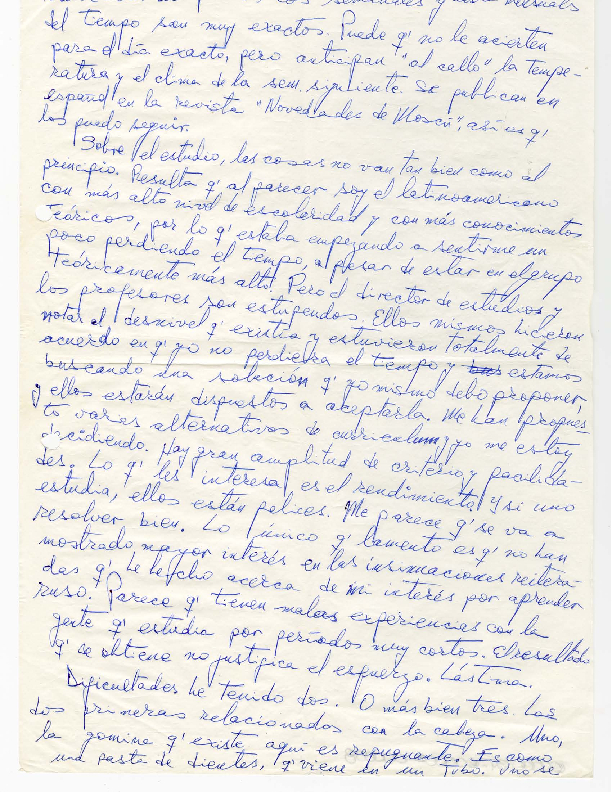 semanales y mensuales
del tiempo son muy exactos. Puede q' no le acierten
para el día exacto, pero anticipan "al callo" la tempe-
ratura y el clima de la sem. siguiente. Se publican en
español en la revista "Novedades de Moscú", así es q'
los puedo seguir.
Sobre el estudio, las cosas no van tan bien como al
principio. Resulta q' al parecer soy el latinoamericano
con más alto nivel de escolaridad y con más conocimientos
teóricos, por lo q' estaba empezando a sentirme un
poco perdiendo el tiempo, a pesar de estar en el grupo
teóricamente más alto. Pero el director de estudios y
los profesores son estupendos. Ellos mismos hicieron
notar el desnivel q' existía y estuvieron totalmente de
acuerdo en q' yo no perdiera el tiempo y estamos
buscando una solución q' yo mismo debo proponer,
y ellos estarán dispuestos a aceptarla. Me han propues
to varias alternativas de curriculum, y yo me estoy
decidiendo. Hay gran amplitud de criterio y facilida-
des. Lo q' les interesa es el rendimiento, y si uno
estudia, ellos están felices. Me parece q' se va a
resolver bien. Lo único q' lamento es q' no han
mostrado mayor interés en las insinuaciones reitera-
das q' he hecho acerca de mi interés por aprender
ruso. Parece q' tienen malas experiencias con la
gente q' estudia por períodos muy cortos. El resultado
q' se obtiene no justifica el esfuerzo. Lástima.
Dificultades he tenido dos. O más bien tres. Las
dos primeras relacionados con la cabeza. Uno,
la gomina q' existe aquí es repugnante. Es como
una pasta de dientes, q' viene en un tubo. no se